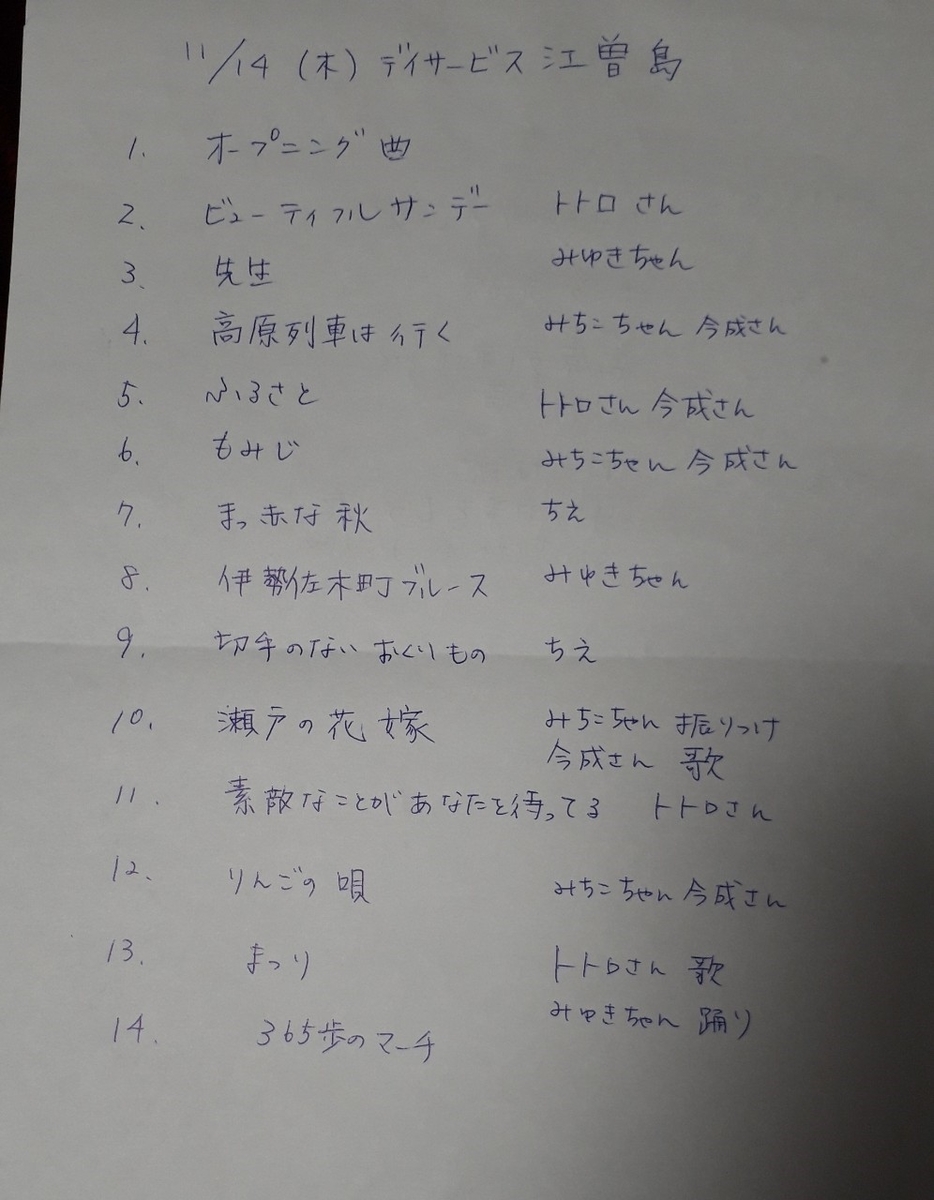 11/14 (木) デイサービス 江曽島
1. オープニング曲
2. ビューティフルサンデー トトロさん
3. 先生 みゆきちゃん
4. 高原列車は行く みちこちゃん 今成さん
5. ふるさと トトロさん 今成さん
6. もみじ みちこちゃん 今成さん
7. まっ赤な秋 ちえ
8. 伊勢佐木町ブルース みゆきちゃん
9. 切手のないおくりもの ちえ
10. 瀬戸の花嫁 みちこちゃん 振りつけ
今成さん 歌
11. 素敵なことがあなたを待ってる トトロさん
12. りんごの唄 みちこちゃん 今成さん
13. まつり トトロさん 歌
みゆきちゃん 踊り
14. 365歩のマーチ